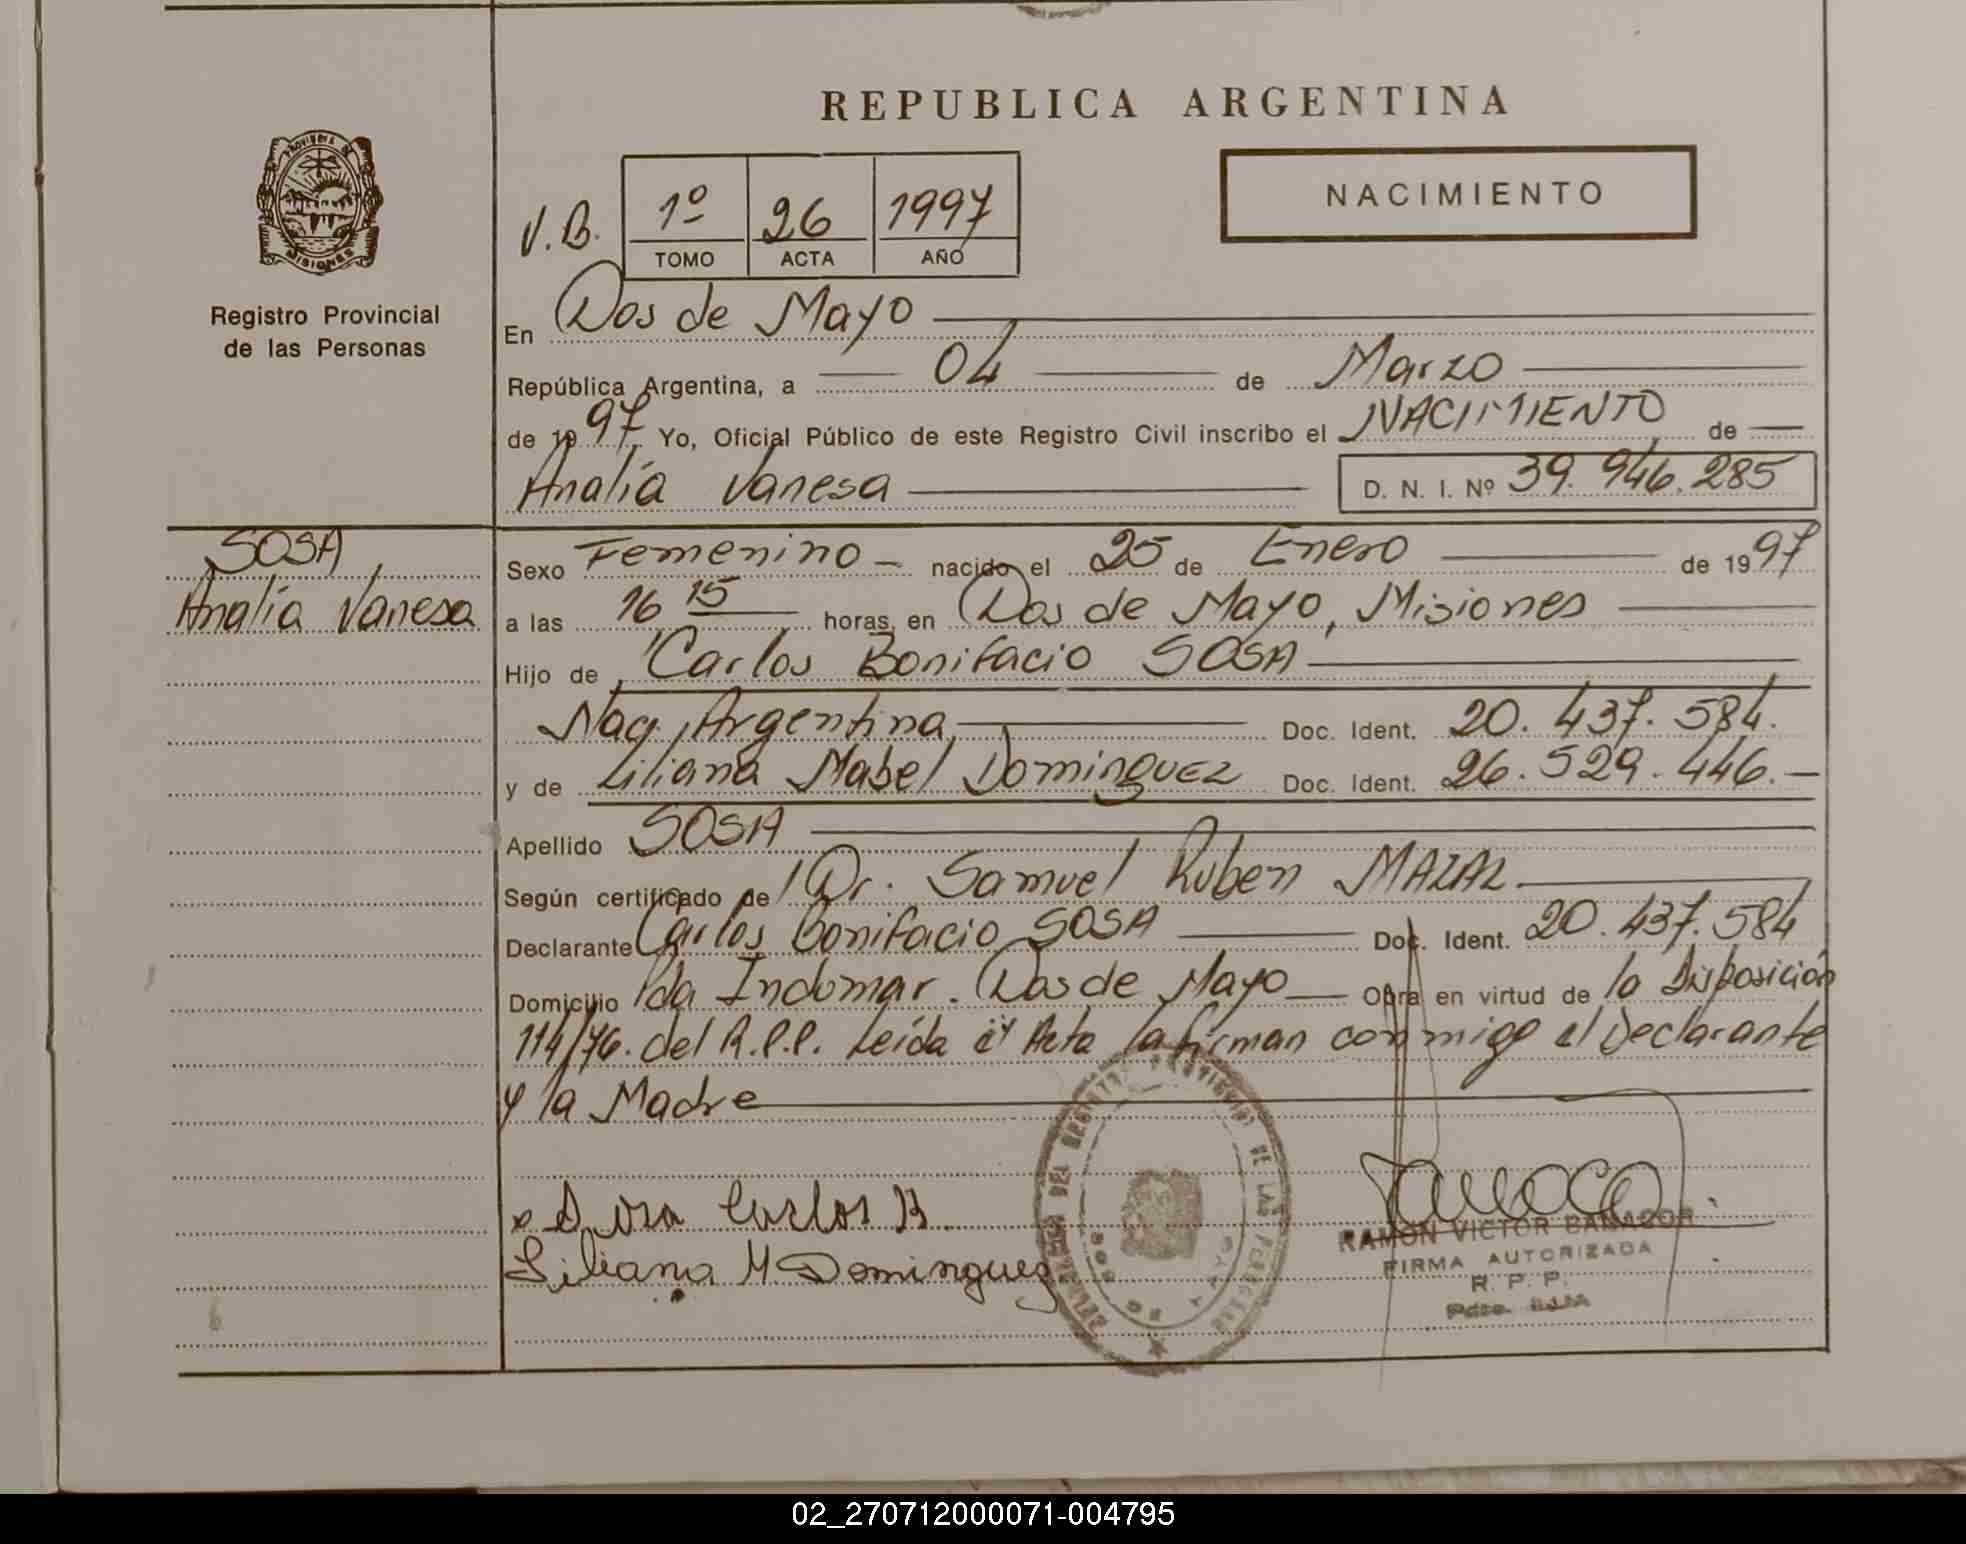 REPUBLICA ARGENTINA
PROVINCIA DE
MISIONES
Registro Provincial
de las Personas
NACIMIENTO
V.B. 1º 26 1997
TOMO ACTA AÑO
En Dos de Mayo
República Argentina, a 04 de Marzo
de 1997, Yo, Oficial Público de este Registro Civil inscribo el NACIMIENTO de
Analía Vanesa D. N. I. Nº 39.946.285
SOSA,
Analía Vanesa
Sexo Femenino nacido el 25 de Enero de 1997
a las 16 15 horas, en Dos de Mayo, Misiones
Hijo de Carlos Bonifacio SOSA
Nac. Argentina Doc. Ident. 20.437.584.
y de Liliana Mabel Dominguez Doc. Ident. 26.529.446.
Apellido SOSA
Según certificado de Dr. Samuel Ruben MAZAL
Declarante Carlos Bonifacio SOSA Doc. Ident. 20.437.584
Domicilio Pda Indumar. Dos de Mayo Obra en virtud de la Disposición
114/76. del R.P.P. Leída el Acta la firman conmigo el Declarante
y la Madre
x Sosa Carlos B.
Liliana M. Dominguez
DEL REGISTRO PROVINCIAL DE LAS PERSONAS
RAMON VICTOR
FIRMA AUTORIZADA
R. P. P.
02_270712000071-004795